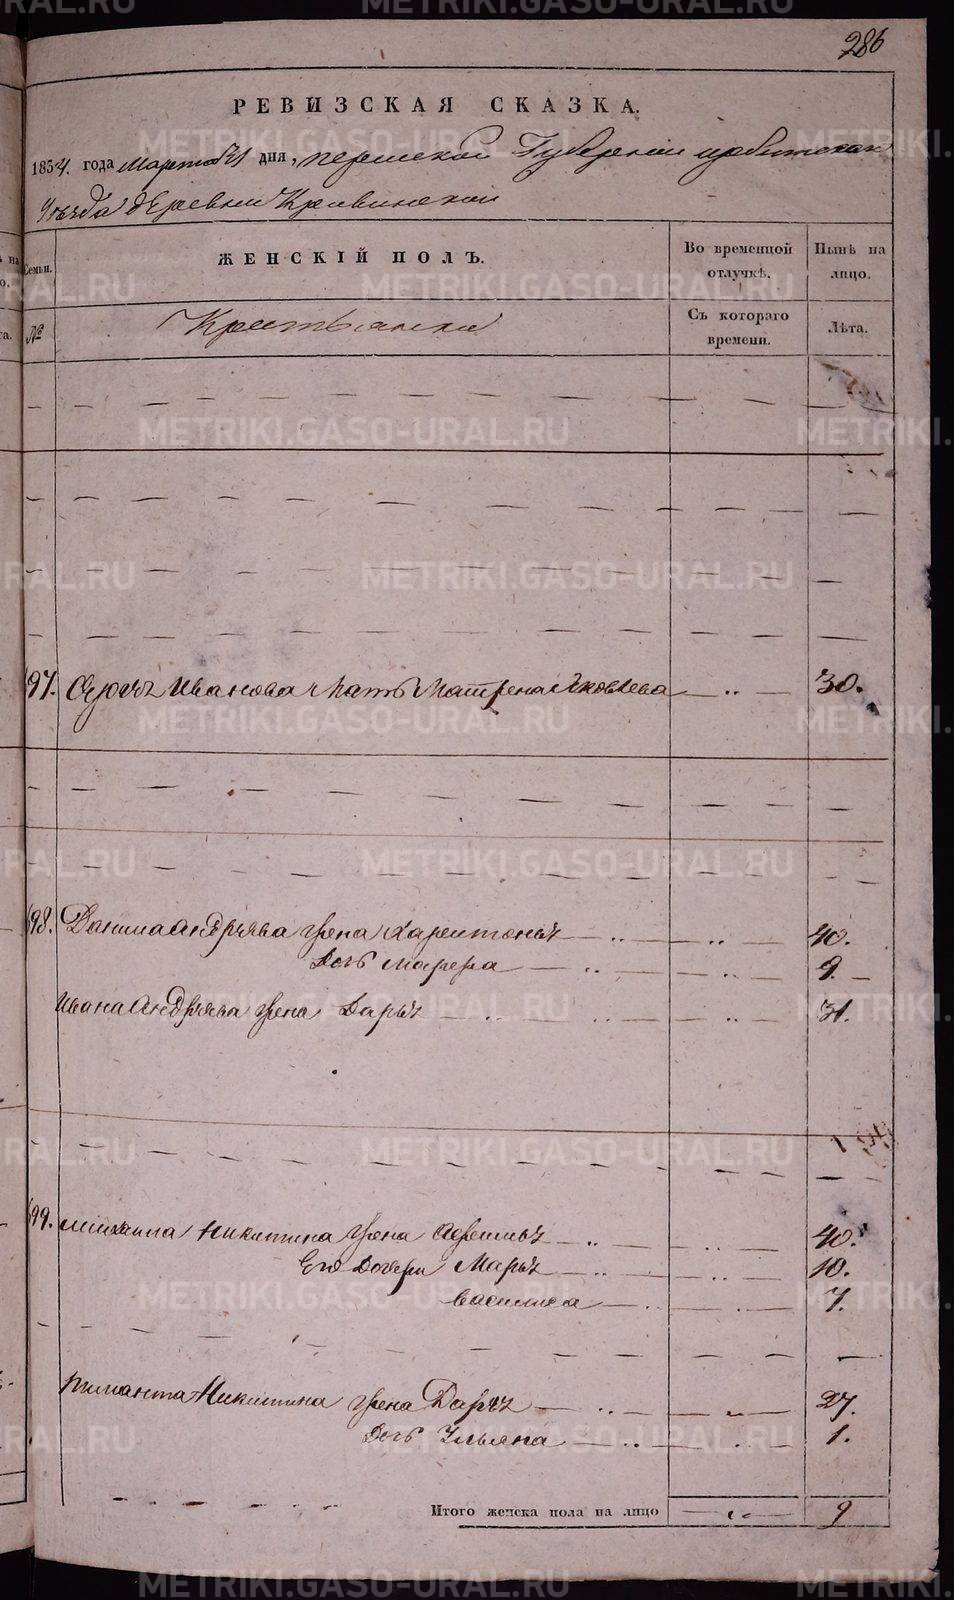 286
РЕВИЗСКАЯ СКАЗКА.
1854. года Марта 21 дня, пермской Губернии ирбитскаго
Уѣзда дЕревни Кривинской
Семьи. ЖЕНСКІЙ ПОЛЪ. Во временной отлучкѣ. Нынѣ на лицо.
№ Крестьянки Съ котораго времени. Лѣта.
97. Иванова Мать Матрена Яковлева — .. — 30.
98. Данила АнДрѣева жена Харитонья — .. — .. — 40.
Дочь Марфа — .. — .. — 9. —
Ивана АнДрѣева жена Дарья — .. — .. — .. — 31.
99. михаила Никитина жена — .. — .. — 40.
Его Дочери Марья — .. — .. — 10.
василиса — .. — .. — 7.
Никитина жена Дарья — .. — .. — 27.
Дочь Ульяна — .. — .. — 1.
Итого женска пола на лицо — .. — 9
METRIKI.GASO-URAL.RU